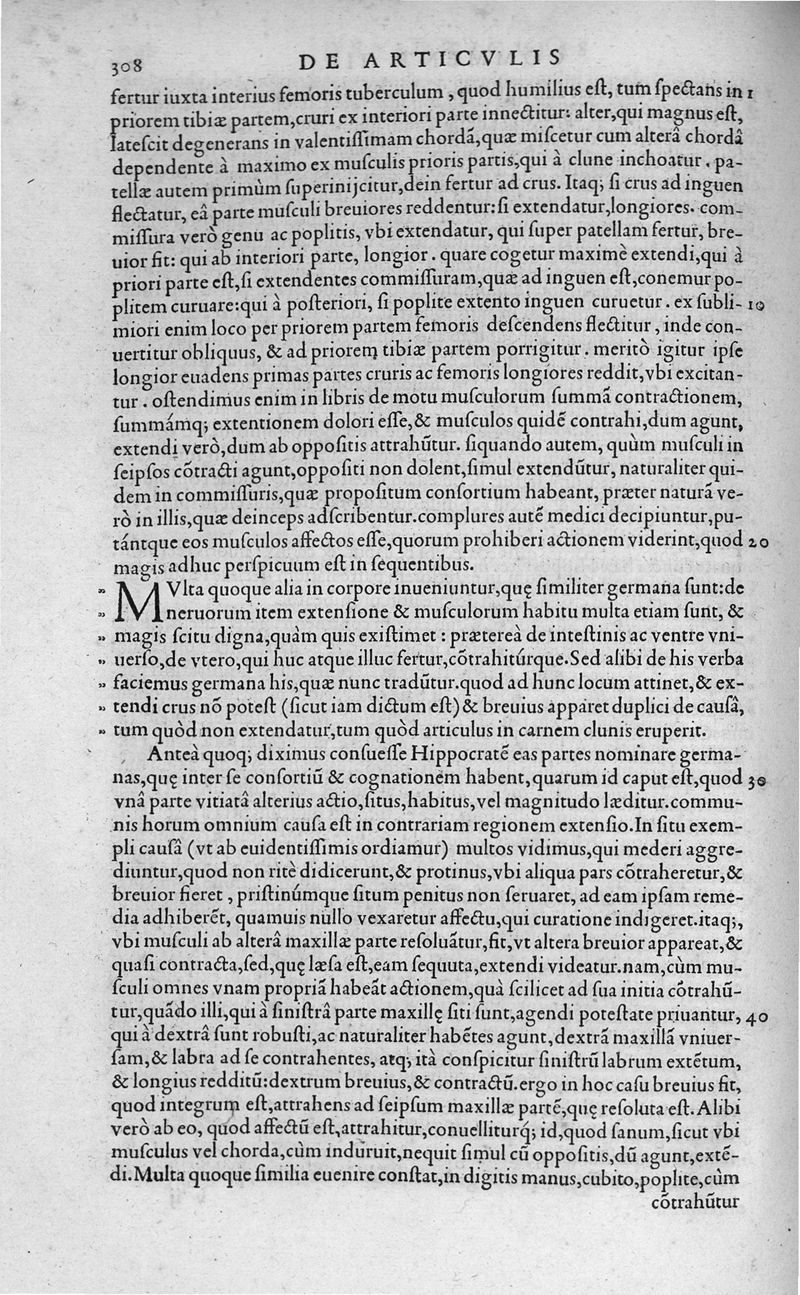 308 DE ARTICVLIS
fertur iuxta interius femoris tuberculum, quod humilius eſt, tum ſpectans in 1
priorem tibiæ partem,cruri ex interiori parte innectitur: alter,qui magnus eſt,
lateſcit degenerans in valentiſſimam chordā,quæ miſcetur cum alterâ chordâ
dependente à maximo ex muſculis prioris partis,qui à clune inchoatur. pa-
tellæ autem primùm ſuperinijcitur,dein fertur ad crus. Itaq; ſi crus ad inguen
flectatur, eâ parte muſculi breuiores reddentur:ſi extendatur,longiores. com-
miſſura verò genu ac poplitis, vbi extendatur, qui ſuper patellam fertur, bre-
uior fit: qui ab interiori parte, longior. quare cogetur maximè extendi,qui à
priori parte eſt,ſi extendentes commiſſuram,quæ ad inguen eſt,conemur po-
plitem curuare:qui à poſteriori, ſi poplite extento inguen curuetur. ex ſubli- 10
miori enim loco per priorem partem femoris deſcendens flectitur, inde con-
uertitur obliquus, & ad priorem tibiæ partem porrigitur. meritò igitur ipſe
longior euadens primas partes cruris ac femoris longiores reddit,vbi excitan-
tur. oſtendimus enim in libris de motu muſculorum ſummā contractionem,
ſummámq; extentionem dolori eſſe,& muſculos quidē contrahi,dum agunt,
extendi verò,dum ab oppoſitis attrahūtur. ſiquando autem, quùm muſculi in
ſeipſos cōtracti agunt,oppoſiti non dolent,ſimul extendūtur, naturaliter qui-
dem in commiſſuris,quæ propoſitum conſortium habeant, præter naturā ve-
rò in illis,quæ deinceps adſcribentur.complures autē medici decipiuntur,pu-
tántque eos muſculos affectos eſſe,quorum prohiberi actionem viderint,quod 20
magis adhuc perſpicuum eſt in ſequentibus.
„ MVlta quoque alia in corpore inueniuntur,quę ſimiliter germana ſunt:de
„ neruorum item extenſione & muſculorum habitu multa etiam ſunt, &
„ magis ſcitu digna,quàm quis exiſtimet: prætereà de inteſtinis ac ventre vni-
„ uerſo,de vtero,qui huc atque illuc fertur,cōtrahitúrque.Sed alibi de his verba
„ faciemus germana his,quæ nunc tradūtur.quod ad hunc locum attinet,& ex-
„ tendi crus nō poteſt (ſicut iam dictum eſt)& breuius apparet duplici de cauſâ,
„ tum quòd non extendatur,tum quòd articulus in carnem clunis eruperit.
Anteà quoq; diximus conſueſſe Hippocratē eas partes nominare germa-
nas,quę inter ſe conſortiū & cognationem habent,quarum id caput eſt,quod 30
vnâ parte vitiatâ alterius actio,ſitus,habitus,vel magnitudo læditur.commu-
nis horum omnium cauſa eſt in contrariam regionem extenſio.In ſitu exem-
pli cauſâ (vt ab euidentiſſimis ordiamur) multos vidimus,qui mederi aggre-
diuntur,quod non ritè didicerunt,& protinus,vbi aliqua pars cōtraheretur,&
breuior fieret, priſtinúmque ſitum penitus non ſeruaret, ad eam ipſam reme-
dia adhiberēt, quamuis nullo vexaretur affectu,qui curatione indigeret.itaq;,
vbi muſculi ab alterâ maxillæ parte reſoluātur,fit,vt altera breuior appareat,&
quaſi contracta,ſed,quę læſa eſt,eam ſequuta,extendi videatur.nam,cùm mu-
ſculi omnes vnam propriā habeāt actionem,quà ſcilicet ad ſua initia cōtrahū-
tur,quādo illi,qui à ſiniſtrâ parte maxillę ſiti ſunt,agendi poteſtate priuantur, 40
qui à dextrâ ſunt robuſti,ac naturaliter habētes agunt,dextrā maxillā vniuer-
ſam,& labra ad ſe contrahentes, atq; ità conſpicitur ſiniſtrū labrum extētum,
& longius redditū:dextrum breuius,& contractū.ergo in hoc caſu breuius fit,
quod integrum eſt,attrahens ad ſeipſum maxillæ partē,quę reſoluta eſt.Alibi
verò ab eo, quod affectū eſt,attrahitur,conuellitúrq; id,quod ſanum,ſicut vbi
muſculus vel chorda,cùm induruit,nequit ſimul cū oppoſitis,dū agunt,extē-
di.Multa quoque ſimilia euenire conſtat,in digitis manus,cubito,poplite,cùm
cōtrahūtur